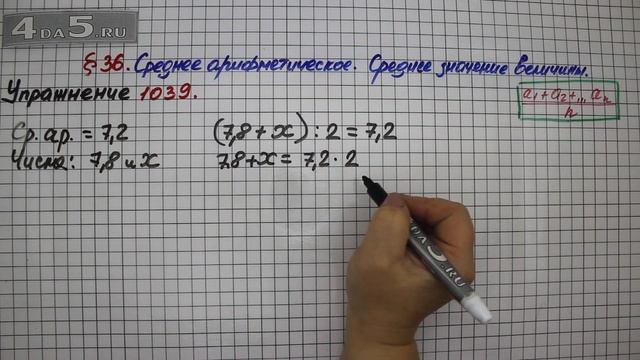 4DA5.RU
§ 36. Среднее арифметическое. Среднее значение величины.
Упражнение 1039.
a₁+a₂+...aₙ
n
Ср. ар. = 7,2
(7,8 + x) : 2 = 7,2
Числа: 7,8 и x
7,8+x = 7,2 · 2
4DA5.RU